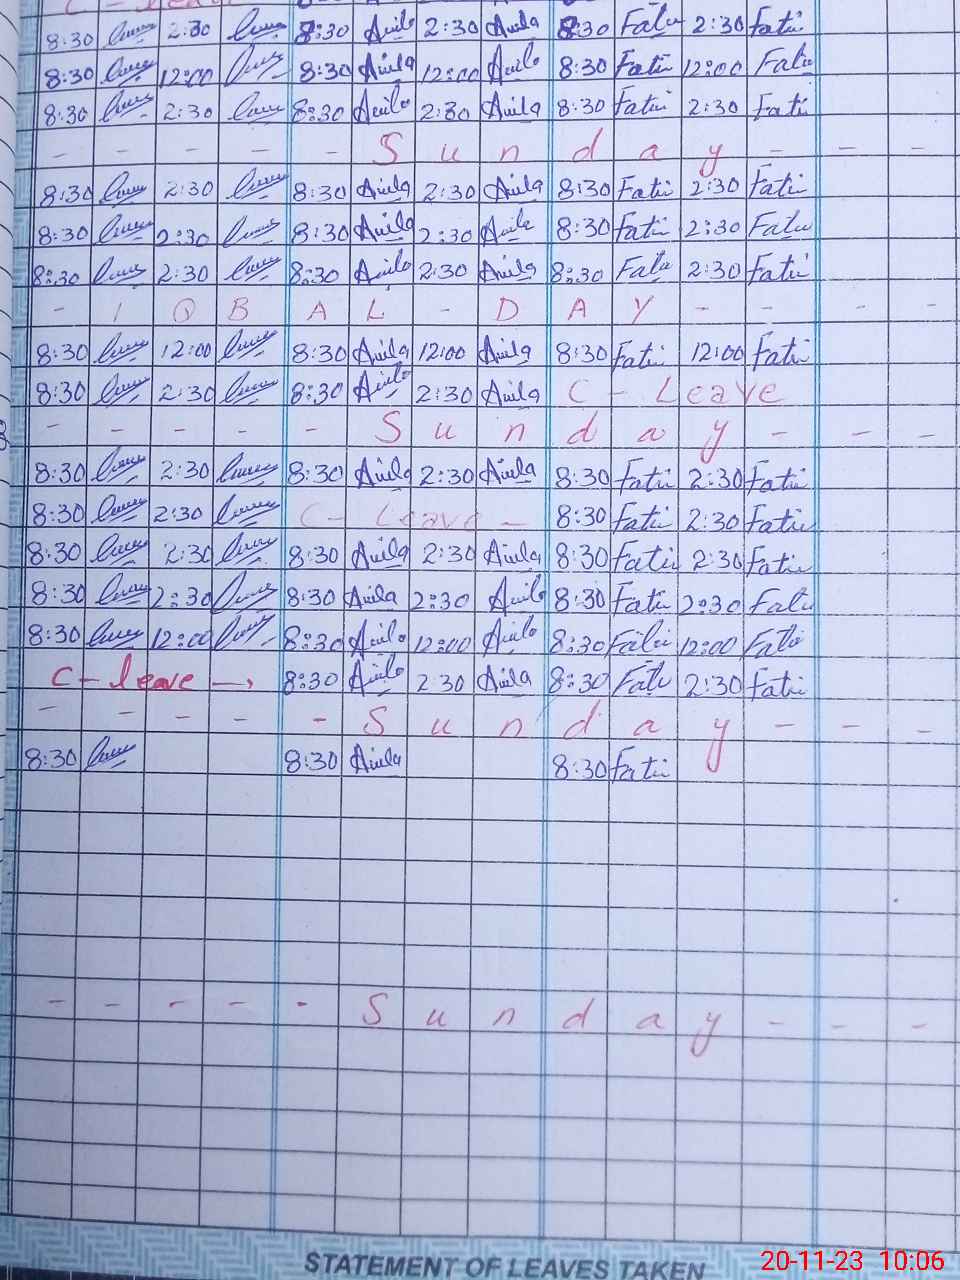 C - leave
8:30 2:30 8:30 Anila 2:30 Anila 8:30 Fatii 2:30 Fatii
8:30 12:00 8:30 Anila 12:00 Anila 8:30 Fatii 12:00 Fatii
8:30 2:30 8:30 Anila 2:30 Anila 8:30 Fatii 2:30 Fatii
- - - - - S u n d a y - - -
8:30 2:30 8:30 Anila 2:30 Anila 8:30 Fatii 2:30 Fatii
8:30 2:30 8:30 Anila 2:30 Anila 8:30 Fatii 2:30 Fatii
8:30 2:30 8:30 Anila 2:30 Anila 8:30 Fatii 2:30 Fatii
- I Q B A L - D A Y - - -
8:30 12:00 8:30 Anila 12:00 Anila 8:30 Fatii 12:00 Fatii
8:30 2:30 8:30 Anila 2:30 Anila C - Leave
- - - - - S u n d a y - - -
8:30 2:30 8:30 Anila 2:30 Anila 8:30 Fatii 2:30 Fatii
8:30 2:30 C - Leave - 8:30 Fatii 2:30 Fatii
8:30 2:30 8:30 Anila 2:30 Anila 8:30 Fatii 2:30 Fatii
8:30 2:30 8:30 Anila 2:30 Anila 8:30 Fatii 2:30 Fatii
8:30 12:00 8:30 Anila 12:00 Anila 8:30 Fatii 12:00 Fatii
C - leave → 8:30 Anila 2:30 Anila 8:30 Fatii 2:30 Fatii
- - - - - S u n d a y - - -
8:30 8:30 Anila 8:30 Fatii
- - - - - S u n d a y - - -
STATEMENT OF LEAVES TAKEN
20-11-23 10:06